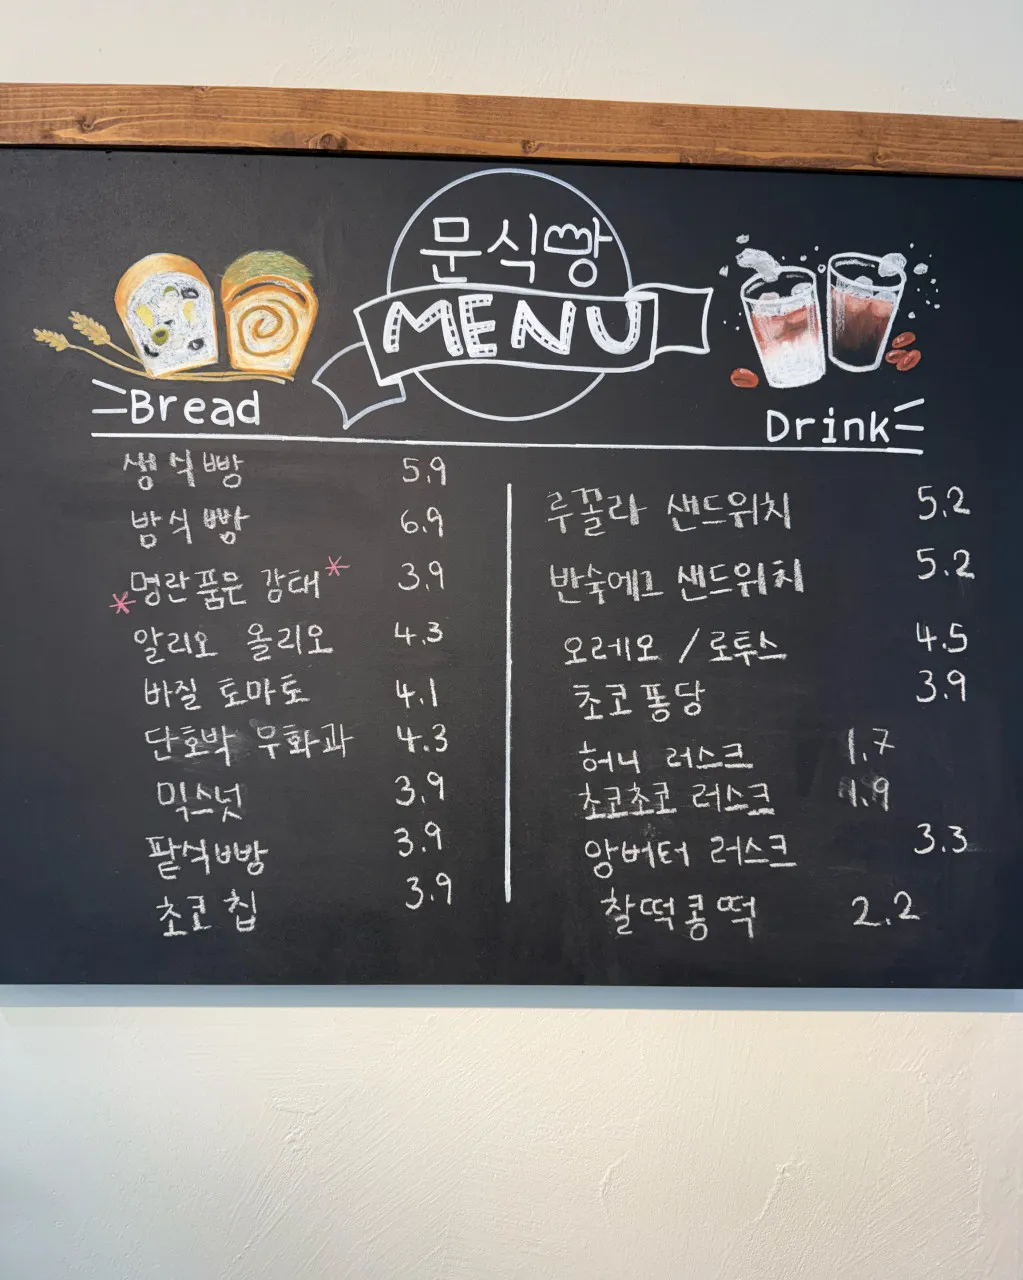 문식빵
MENU
Bread
생식빵 5.9
밤식빵 6.9
*명란품은 감태* 3.9
알리오 올리오 4.3
바질 토마토 4.1
단호박 무화과 4.3
믹스넛 3.9
팥식빵 3.9
초코칩 3.9
Drink
루꼴라 샌드위치 5.2
반숙에그 샌드위치 5.2
오레오 / 로투스 4.5
초코퐁당 3.9
허니 러스크 1.7
초코초코 러스크 1.9
앙버터 러스크 3.3
찰떡콩떡 2.2